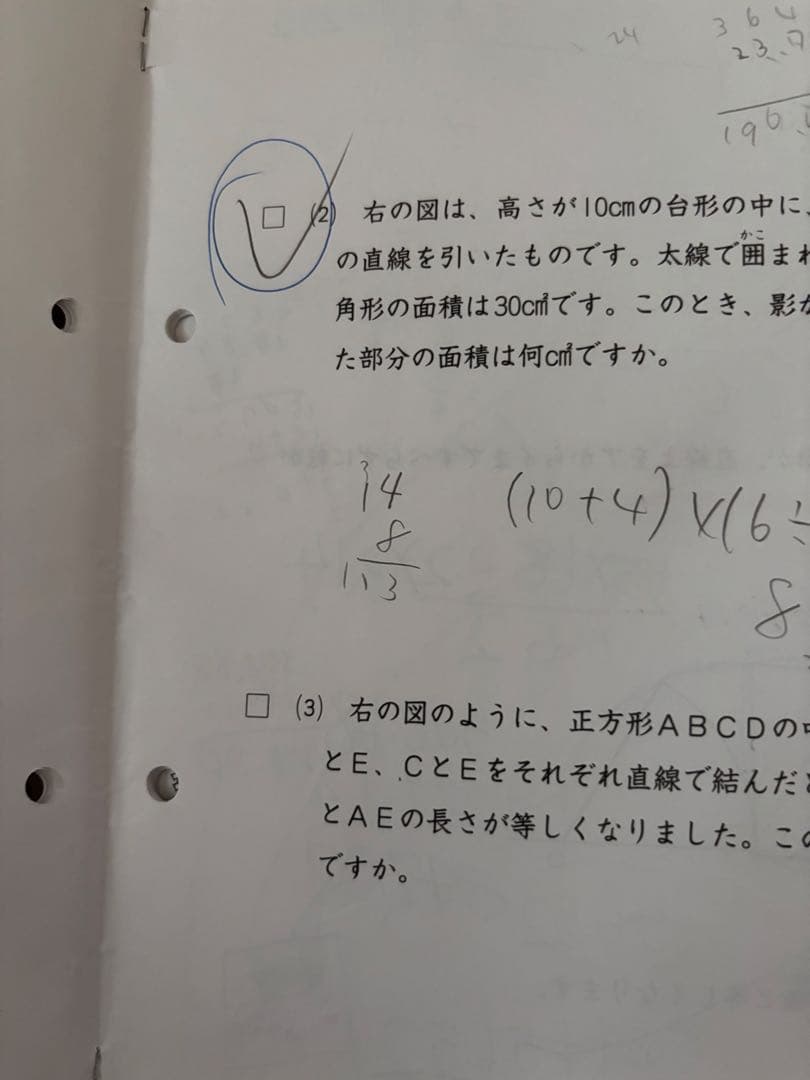 24
3 6 4
2 3 . 7
1 9 6
□ (2) 右の図は、高さが10cmの台形の中に、
の直線を引いたものです。太線で囲(かこ)まれ
角形の面積は30cm²です。このとき、影が
た部分の面積は何cm²ですか。
14
8
113
(10+4)×(6÷
8
□ (3) 右の図のように、正方形ABCDの中
とE、CとEをそれぞれ直線で結んだと
とAEの長さが等しくなりました。この
ですか。